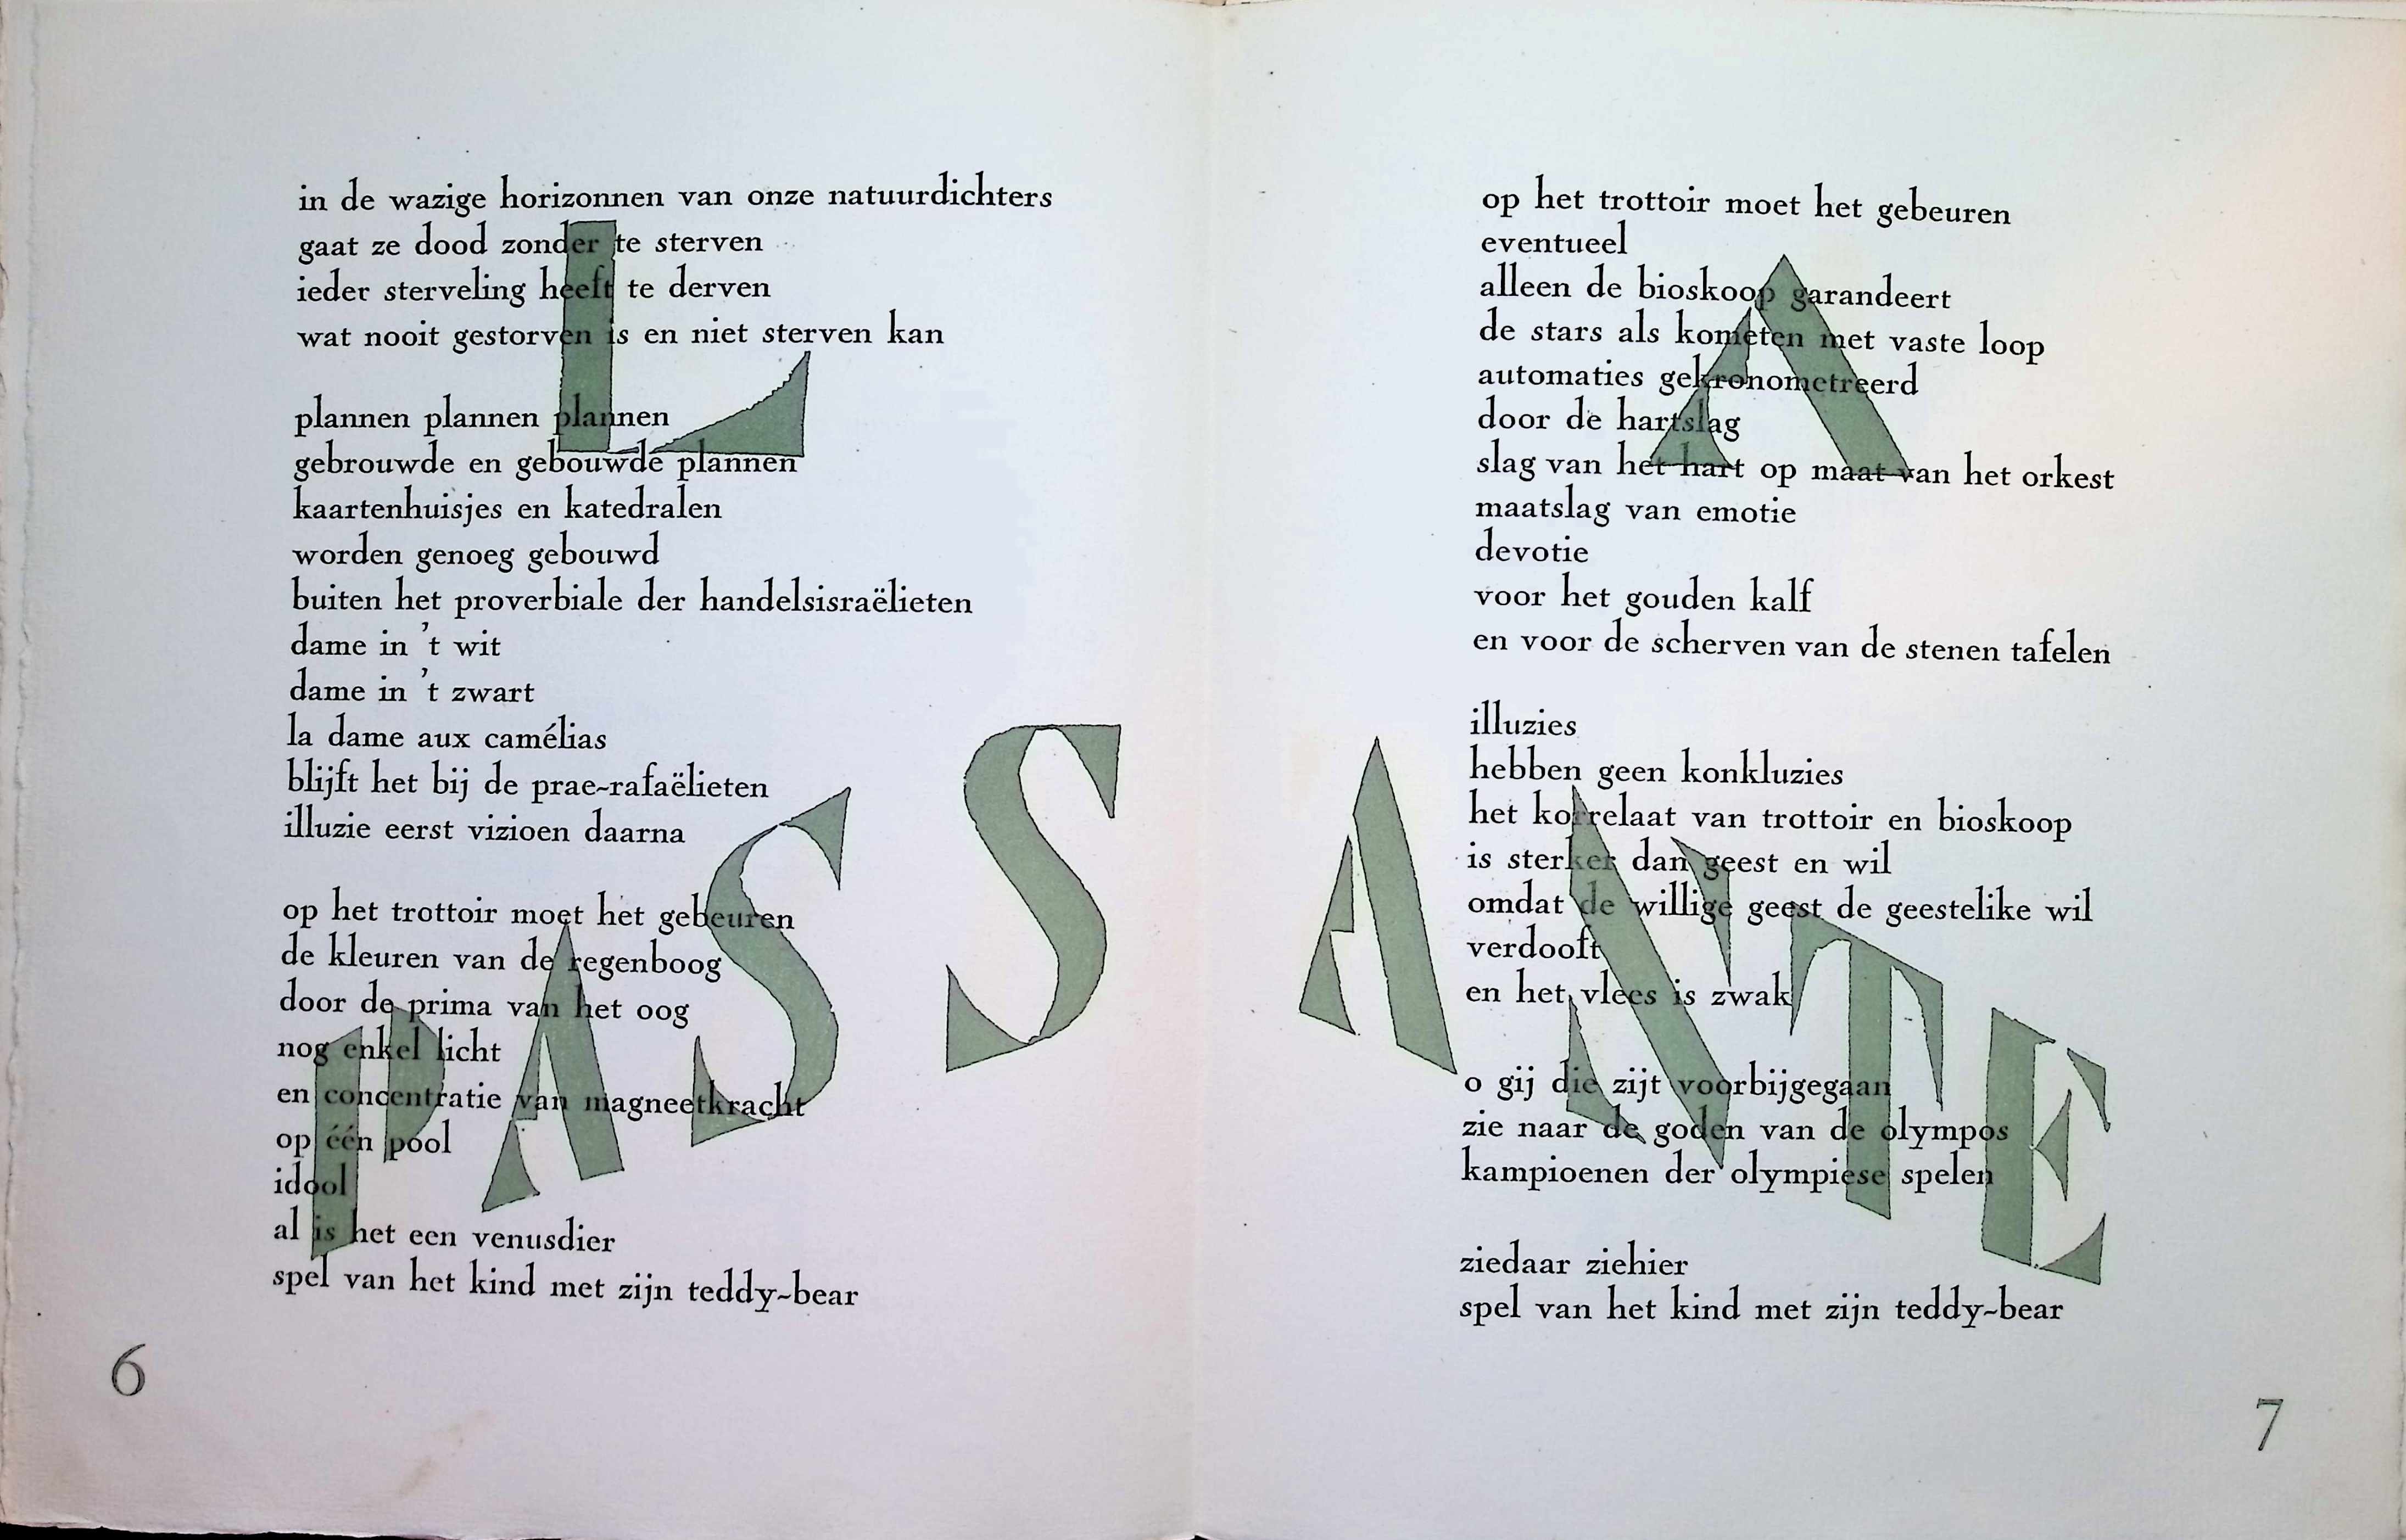 in de wazige horizonnen van onze natuurdichters
gaat ze dood zonder te sterven
ieder sterveling heeft te derven
wat nooit gestorven is en niet sterven kan
plannen plannen plannen
gebrouwde en gebouwde plannen
kaartenhuisjes en katedralen
worden genoeg gebouwd
buiten het proverbiale der handelsisraëlieten
dame in 't wit
dame in 't zwart
la dame aux camélias
blijft het bij de prae-rafaëlieten
illuzie eerst vizioen daarna
op het trottoir moet het gebeuren
de kleuren van de regenboog
door de prima van het oog
nog enkel licht
en concentratie van magneetkracht
op één pool
idool
al is het een venusdier
spel van het kind met zijn teddy-bear
6
op het trottoir moet het gebeuren
eventueel
alleen de bioskoop garandeert
de stars als kometen met vaste loop
automaties gekronometreerd
door de hartslag
slag van het hart op maat van het orkest
maatslag van emotie
devotie
voor het gouden kalf
en voor de scherven van de stenen tafelen
illuzies
hebben geen konkluzies
het korrelaat van trottoir en bioskoop
is sterker dan geest en wil
omdat de willige geest de geestelike wil
verdooft
en het vlees is zwak
o gij die zijt voorbijgegaan
zie naar de goden van de olympos
kampioenen der olympiese spelen
ziedaar ziehier
spel van het kind met zijn teddy-bear
7
LA
PASSANTE